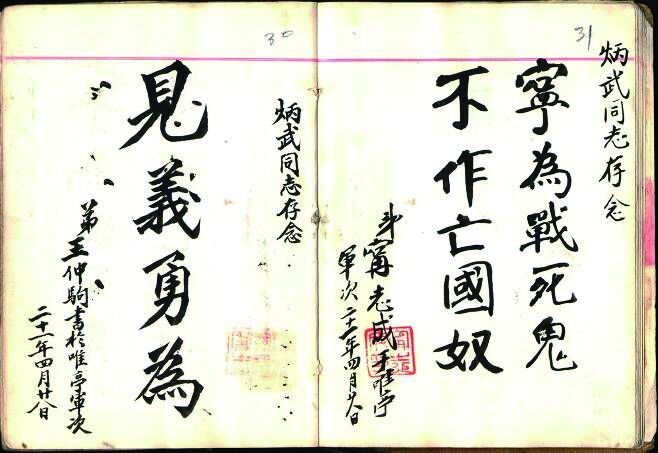 31
炳武同志存念
寧為戰死鬼
不作亡國奴
弟甯志成于唯亭
軍次二十一年四月廿八日
30
炳武同志存念
見義勇為
弟王仲駒書於唯亭軍次
二十一年四月廿八日